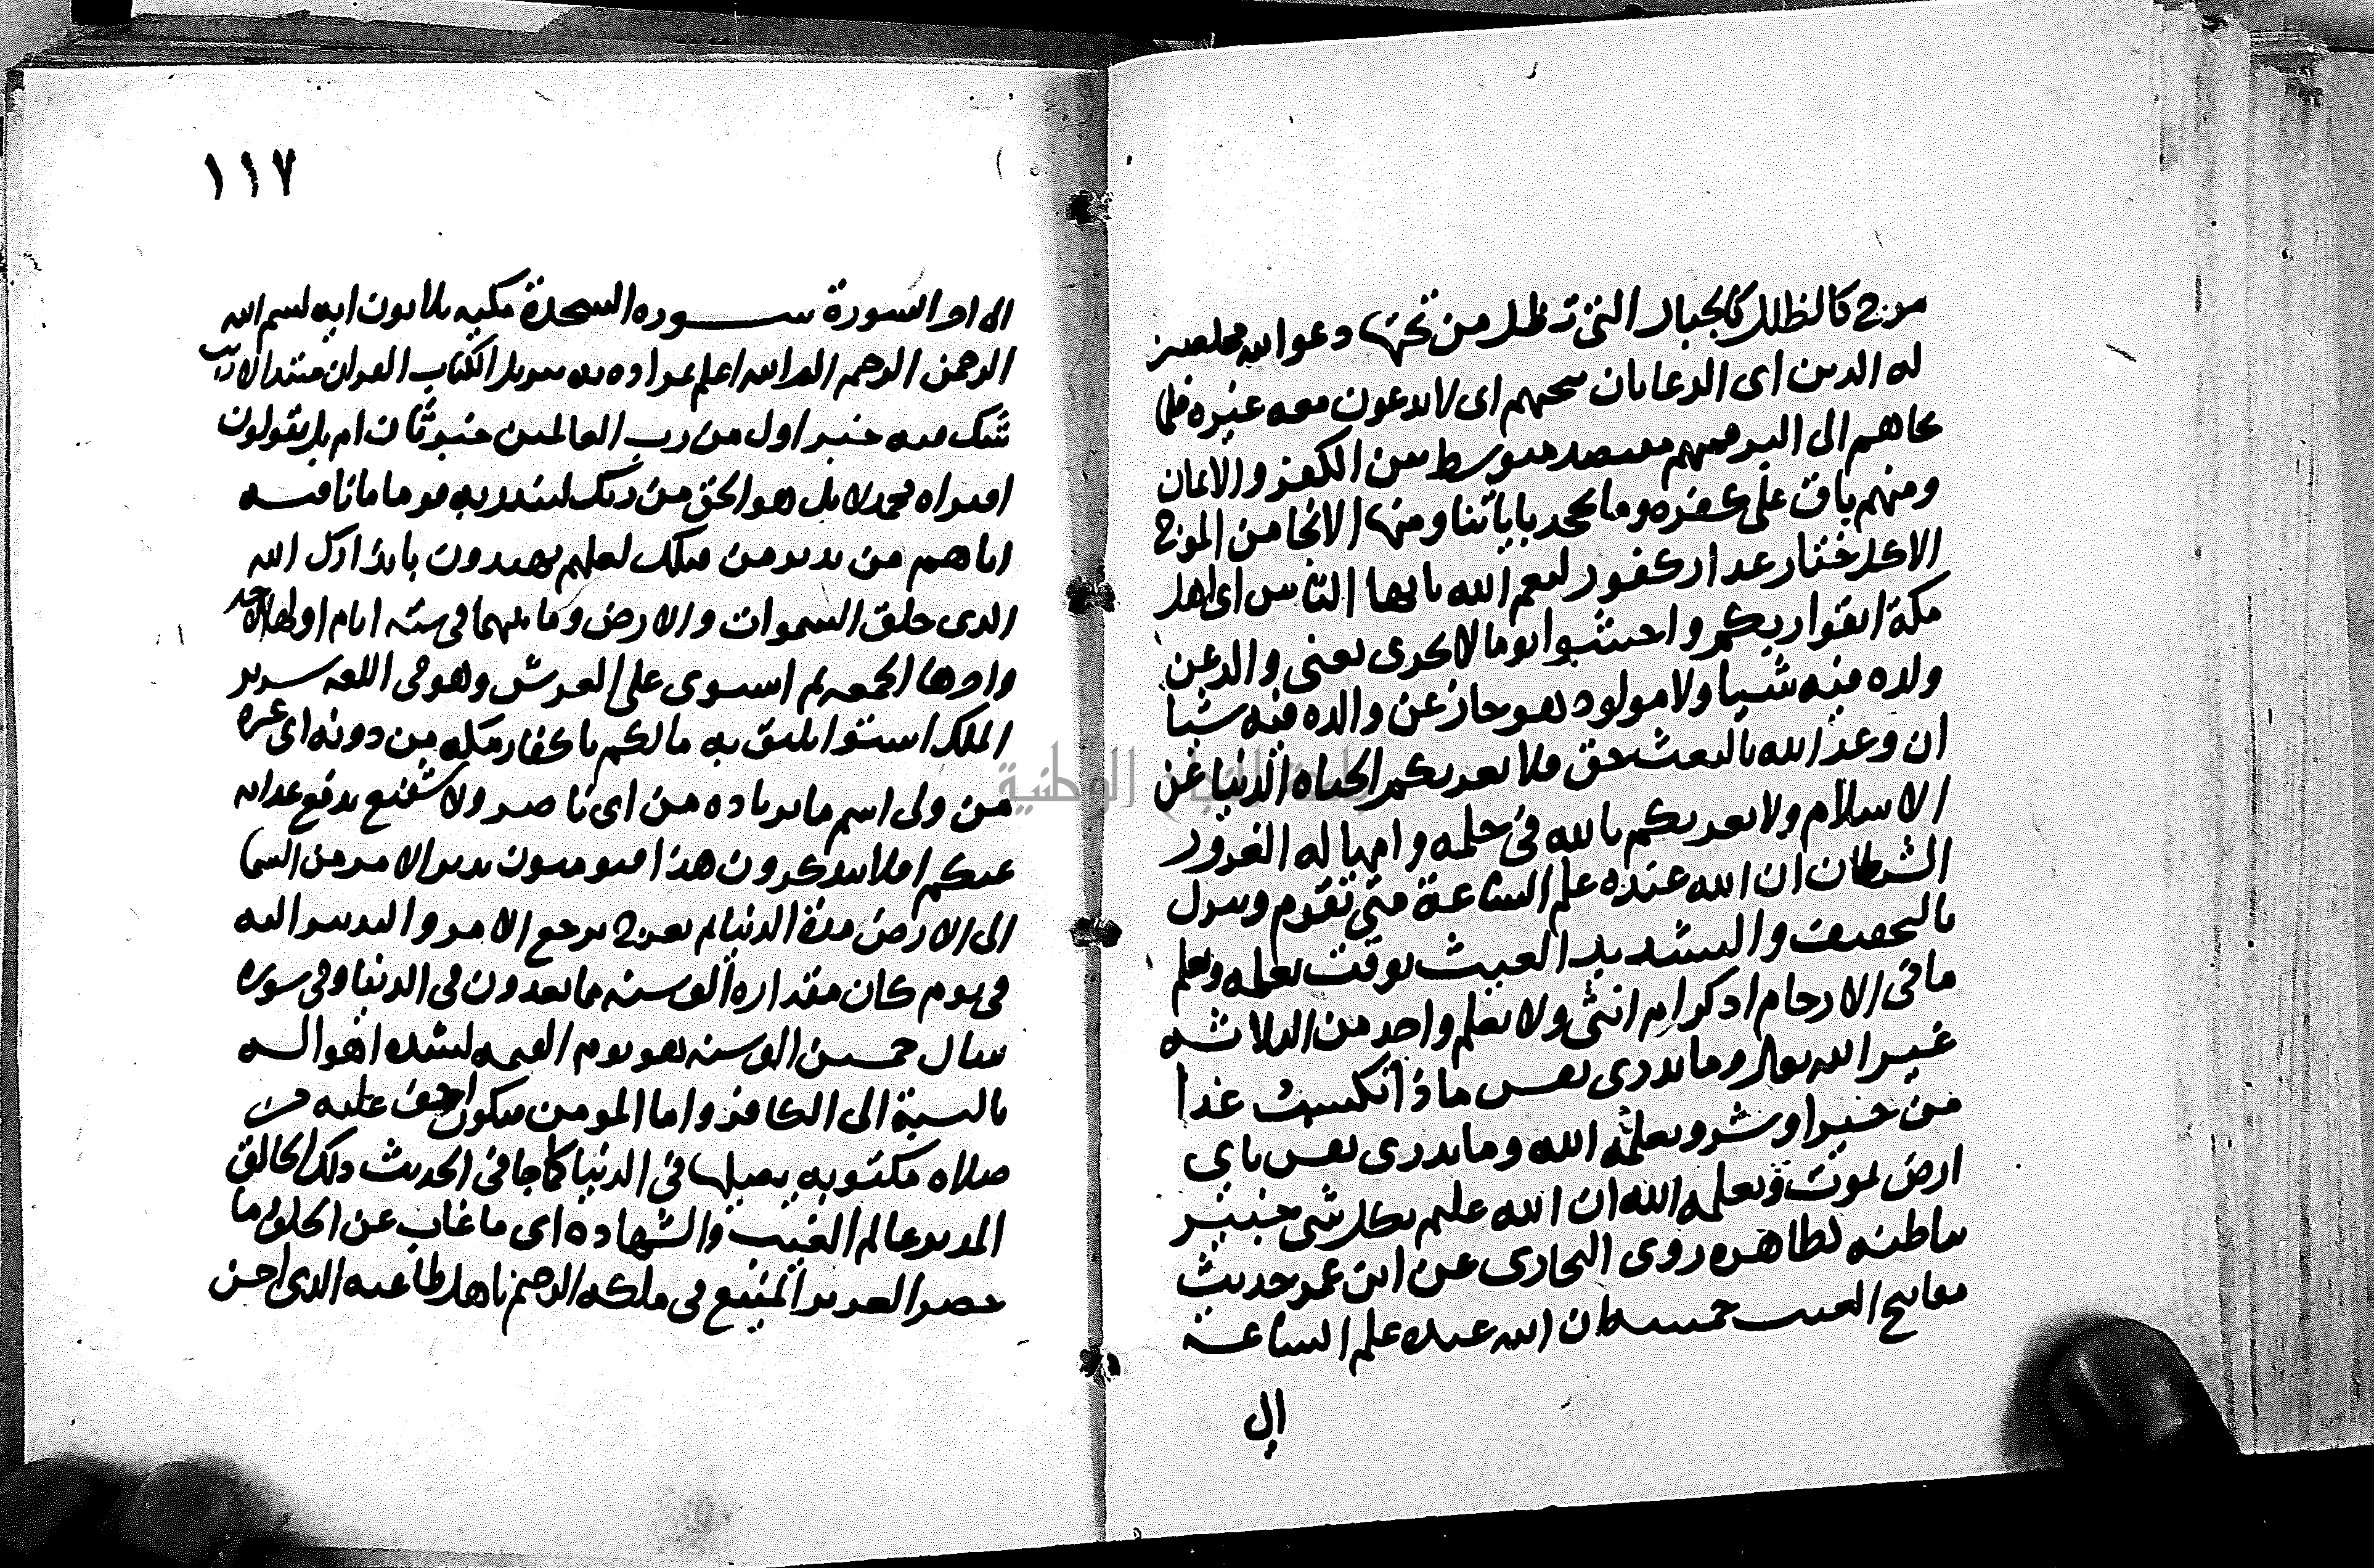 موج كالظلل كالجبال التي تظل من تحتها دعوا الله مخلصين
له الدين اي الدعا بان ينجيهم اي لا يدعون معه غيره فلما
نجاهم الى البر فمنهم مقتصد متوسط بين الكفر والايمان
ومنهم باق على كفره وما يجحد باياتنا ومنها الانجا من الموج
الا كل ختار غدار كفور لنعم الله يا ايها الناس اي اهل
مكة اتقوا ربكم واخشوا يوما لا يجزى يغني والد عن
ولده فيه شيا ولا مولود هو جاز عن والده فيه شيا
ان وعد الله بالبعث حق فلا تغرنكم الحياه الدنيا عن
الاسلام ولا يغرنكم بالله في حلمه وامهاله الغرور
الشيطان ان الله عنده علم الساعة متى تقوم وينزل
بالتخفيف والتشديد الغيث بوقت يعلمه ويعلم
ما في الارحام اذكر ام انثى ولا يعلم واحد من الثلاثه
غير الله تعالى وما تدري نفس ماذا تكسب غدا
من خير او شر ويعلمه الله وما تدري نفس باي
ارض تموت ويعلمه الله ان الله عليم بكل شي خبير
بباطنه كظاهره روى البخاري عن ابن عمر حديث
مفاتيح الغيب خمسه ان الله عنده علم الساعه
الى
١١٧
الى اخر السورة سوره السجدة مكيه ثلاثون ايه بسم الله
الرحمن الرحيم الم الله اعلم بمراده به تنزيل الكتاب القران مبتدا لا ريب
شك فيه خبر اول من رب العالمين خبر ثان ام بل يقولون
افتراه محمد لا بل هو الحق من ربك لتنذر به قوما ما نافيه
اتاهم من نذير من قبلك لعلهم يهتدون بانذارك الله
الذي خلق السموات والارض وما بينهما في ستة ايام اولها الاحد
واخرها الجمعه ثم استوى على العرش وهو في اللغه سرير
الملك استوا يليق به ما لكم يا كفار مكه من دونه اي غيره
من ولي اسم ما بزياده من اي ناصر ولا شفيع يدفع عذابه
عنكم افلا تتذكرون هذا فتومنون يدبر الامر من السما
الى الارض مدة الدنيا ثم يعرج يرجع الامر والتدبير اليه
في يوم كان مقداره الف سنه مما تعدون في الدنيا وفي سورة
سال خمسين الف سنه هو يوم القيمه لشده اهواله
بالنسبة الى الكافر واما المومن فيكون اخف عليه من
صلاه مكتوبه يصليها في الدنيا كما جا في الحديث ذلك الخالق
المدبر عالم الغيب والشهاده اي ما غاب عن الخلق وما
حضر العزيز المنيع في ملكه الرحيم باهل طاعته الذي احسن